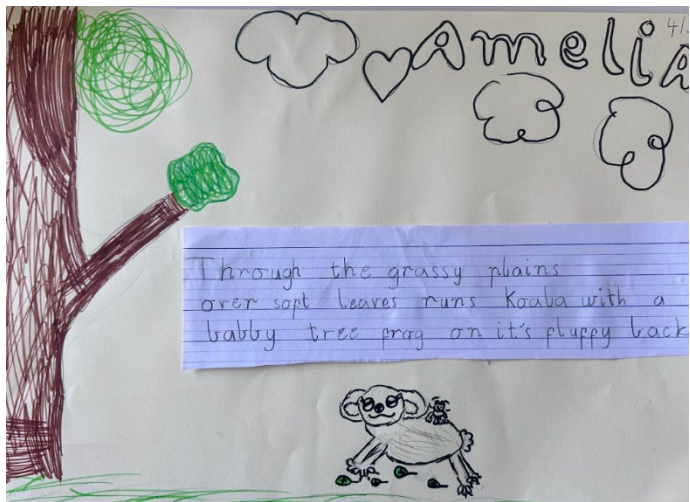 4/
Amelia
Through the grassy plains
over sopt leaves runs Koala with a
babby tree frog on it's fluppy back